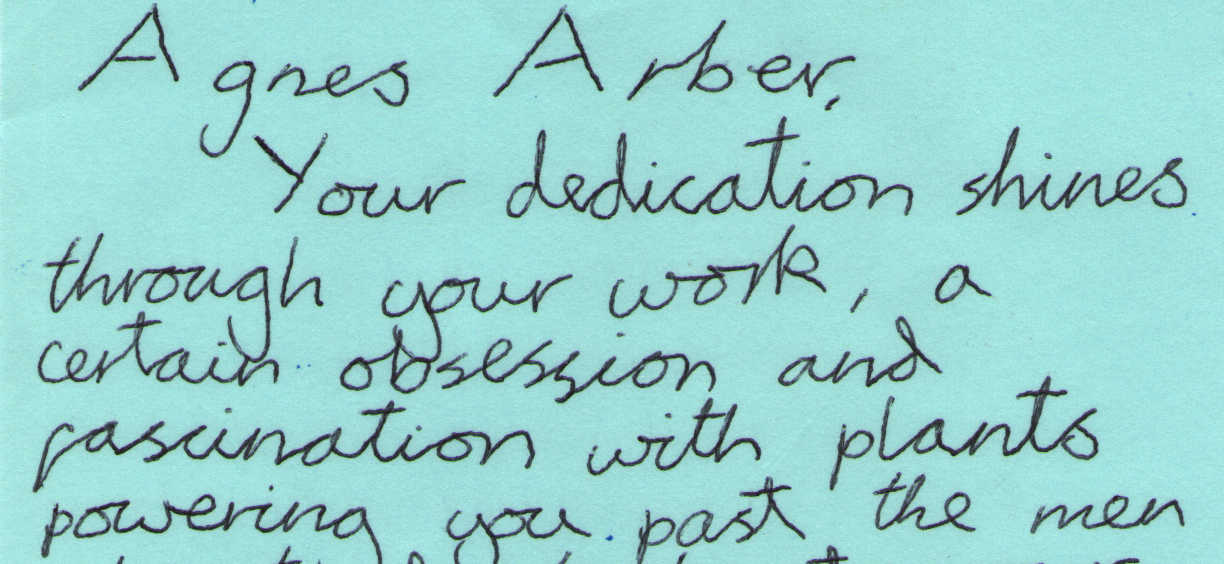 Agnes Arber,
Your dedication shines
through your work, a
certain obsession and
fascination with plants
powering you past the men